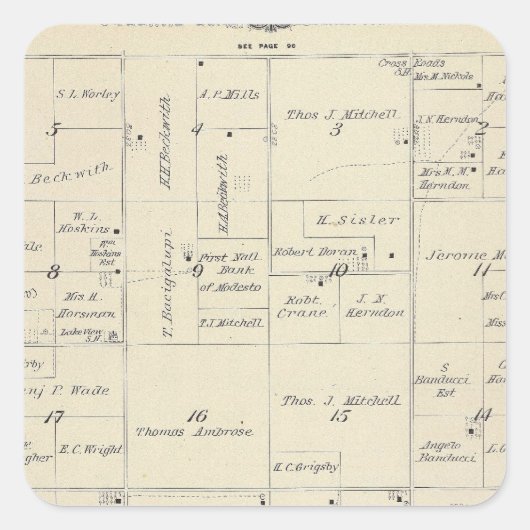 SEE PAGE 96
Cross Roads
S.H.
Mrs. M. Nichols
S. L. Worley
5
A. P. Mills
4
H.H. Beckwith
H.A. Beckwith
Thos J. Mitchell
3
J. N. Herndon
2
Beckwith
Mrs M. M.
Herndon
W. L.
Hoskins
Wm
Hoskins
Est
8
Mrs H.
Horsman
Lake View
S.H.
T. Bacigalupi
9
First Natl
Bank
of Modesto
T.J. Mitchell
H. Sisler
Robert Doran
10
Robt.
Crane
J. N.
Herndon
11
17
E. C. Wright
16
Thomas Ambrose
Thos. J. Mitchell
15
H. C. Grigsby
S
Banducci
Est
14
Angelo
Banducci